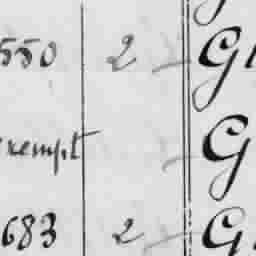 550 2 G
exempt G
683 2 G